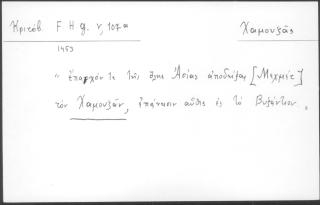 Κριτόβ. F H g. V, 107a
Χαμουζᾶς
1453
" ἔπαρχόν τε τῆς ὅλης Ἀσίας ἀποδείξας [Μεχμέτ]
τὸν Χαμουζᾶν, ἐπάνεισιν αὖθις ἐς τὸ Βυζάντιον.